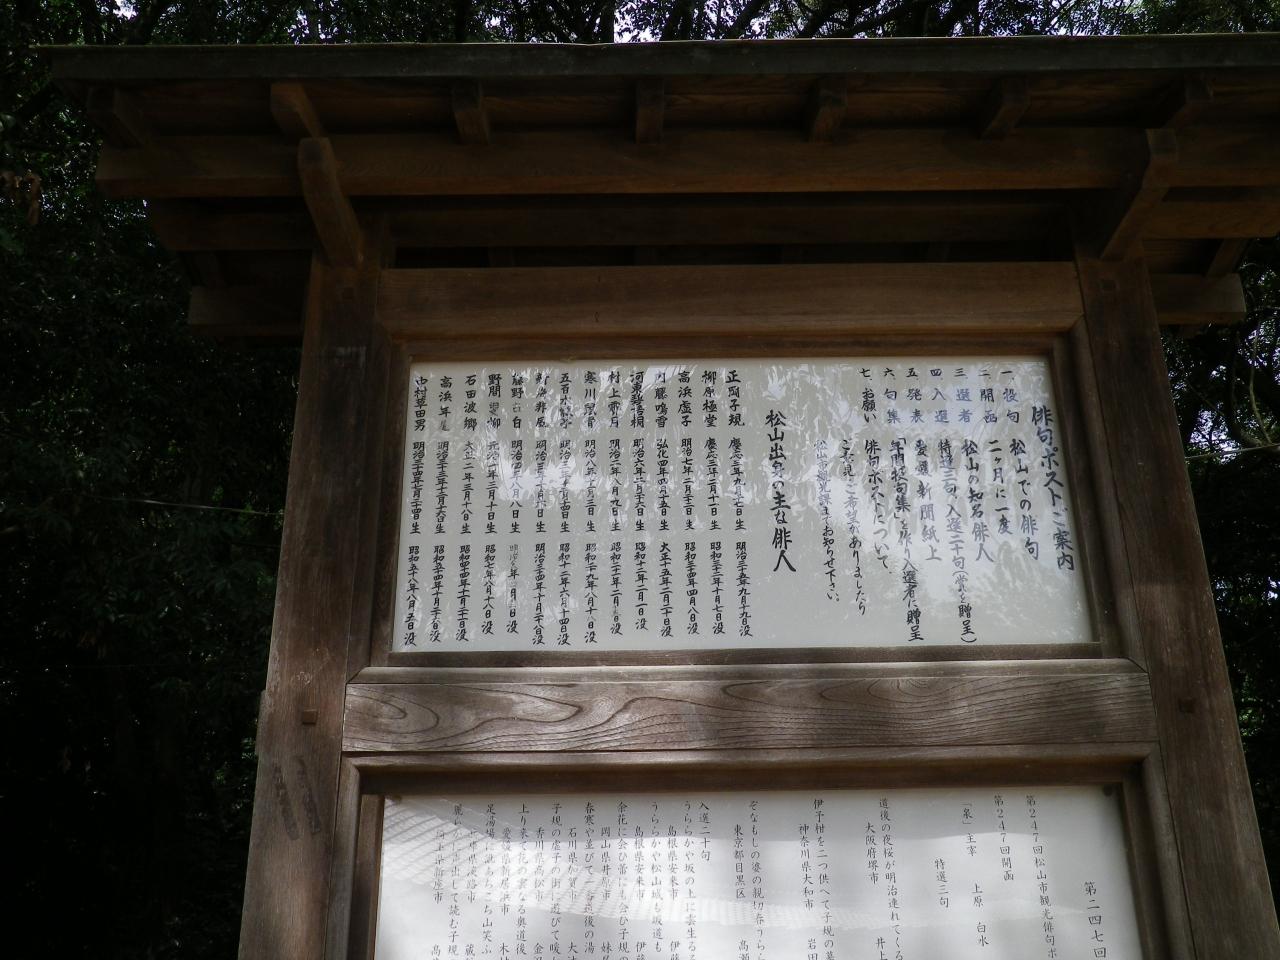 俳句ポストご案内
一、投句 松山での俳句
二、開函 二ヶ月に一度
三、選者 松山の知名俳人
四、入選 特選三句、入選二十句(賞を贈呈)
五、発表 愛媛新聞紙上
六、句集 「年間投句集」を作り入選者に贈呈
七、お願い 俳句ポストについて、
ご意見、ご希望がありましたら
松山市 までお知らせ下さい。
松山出身の主な俳人
正岡子規 慶応三年九月十七日生 明治三十五年九月十九日没
柳原極堂 慶応三年二月十一日生 昭和三十二年十月七日没
高浜虚子 明治七年二月二十二日生 昭和三十四年四月八日没
内藤鳴雪 弘化四年四月十五日生 大正十五年二月二十日没
河東碧梧桐 明治六年二月二十六日生 昭和十二年二月一日没
村上霽月 明治二年八月 日生 昭和二十一年二月 日没
寒川鼠骨 明治八年十月三十日生 昭和二十九年八月十八日没
五百木飄亭 明治三年十二月十四日生 昭和十二年六月十四日没
新海非風 明治三年十月六日生 明治三十四年十月二十八日没
藤野古白 明治四年八月八日生 明治 年 月 日没
野間叟柳 元治一年三月十日生 昭和七年八月十八日没
石田波郷 大正二年三月十八日生 昭和四十四年十一月二十一日没
高浜年尾 明治三十三年十二月十六日生 昭和五十四年十月二十六日没
中村草田男 明治三十四年七月二十四日生 昭和五十八年八月五日没
第二四七回
第247回松山市観光俳句ポ
第247回開函
「泉」主宰 上原 白水
特選三句
道後の夜桜が明治連れてくる
大阪府堺市 井上
伊予柑を二つ供へて子規の墓
神奈川県大和市 岩田
ぞなもしの婆の親切春うらら
東京都目黒区 高瀬
入選二十句
うららかや坂の上に雲生るる
島根県安来市 伊藤
うららかや松山城も坂道も
島根県安来市 伊藤
余花に会ひ蕾にも会ひ子規の
岡山県井原市 妹尾
春寒や並びて 道後の湯
石川県加賀市 大
子規の虚子の街に遊びて暖
香川県高松市 金
上り来て花の雲なる奥道後
愛媛県新居浜市 木
足湯場に洗あちこち山笑ふ
兵庫県淡路市 蔵
麗らかや声出して読む子規
埼玉県新座市 高